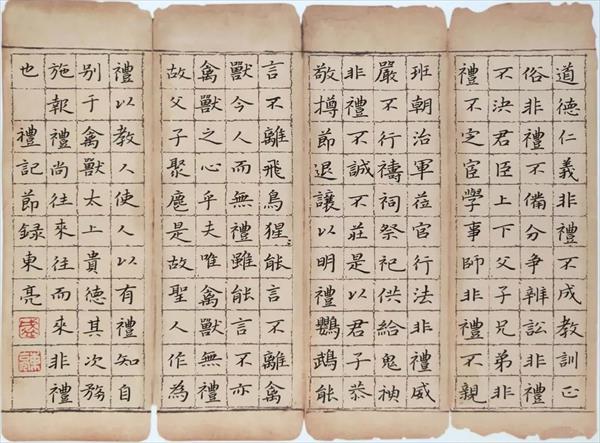 道德仁義非禮不成教訓正
俗非禮不備分争辨訟非禮
不決君臣上下父子兄弟非
禮不定宦學事師非禮不親
班朝治軍莅官行法非禮威
嚴不行禱祠祭祀供給鬼神
非禮不誠不莊是以君子恭
敬撙節退讓以明禮鸚鵡能
言不離飛鳥猩〻能言不離禽
獸今人而無禮雖能言不亦
禽獸之心乎夫唯禽獸無禮
故父子聚麀是故聖人作為
禮以教人使人以有禮知自
别于禽獸太上貴德其次務
施報禮尚往來往而來非禮
也 禮記節録東亮